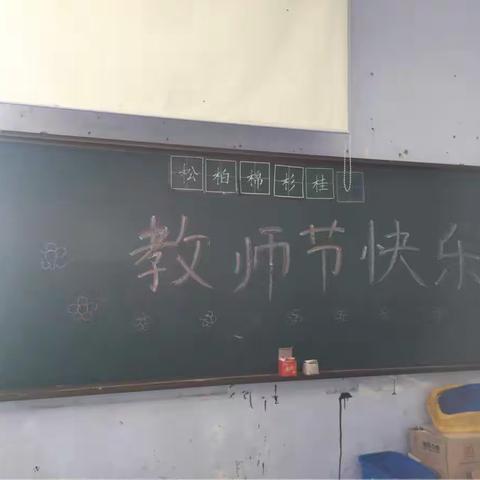 松柏棉杉桂
教师节快乐